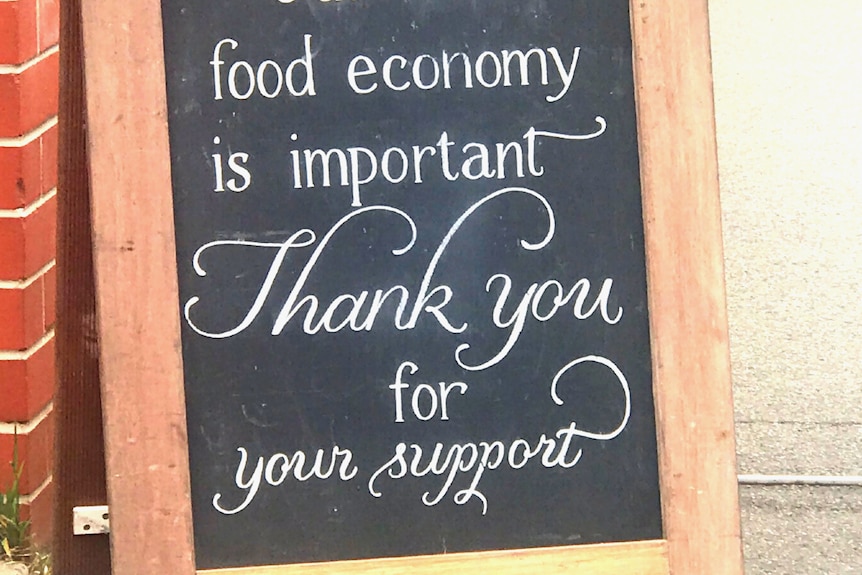 food economy
is important
Thank you
for
your support